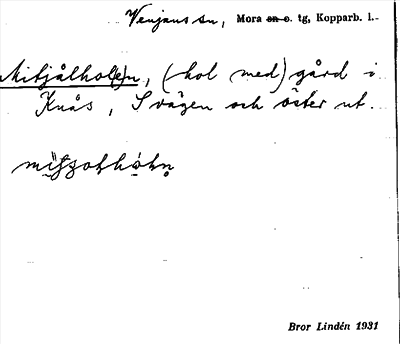 Venjans sn, Mora on o. tg, Kopparb. l.
Mitjålhol(e)n, (hol med) gård i
Knås, S vägen och öster ut.
Bror Lindén 1931